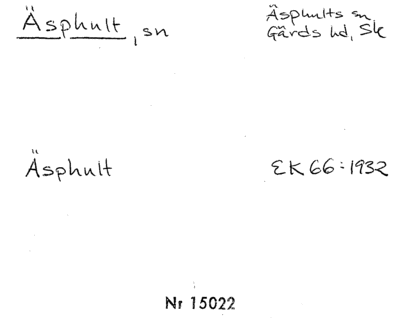 Äsphult, sn
Äsphults sn,
Gärds hd, Sk
Äsphult
EK 66:1932
Nr 15022